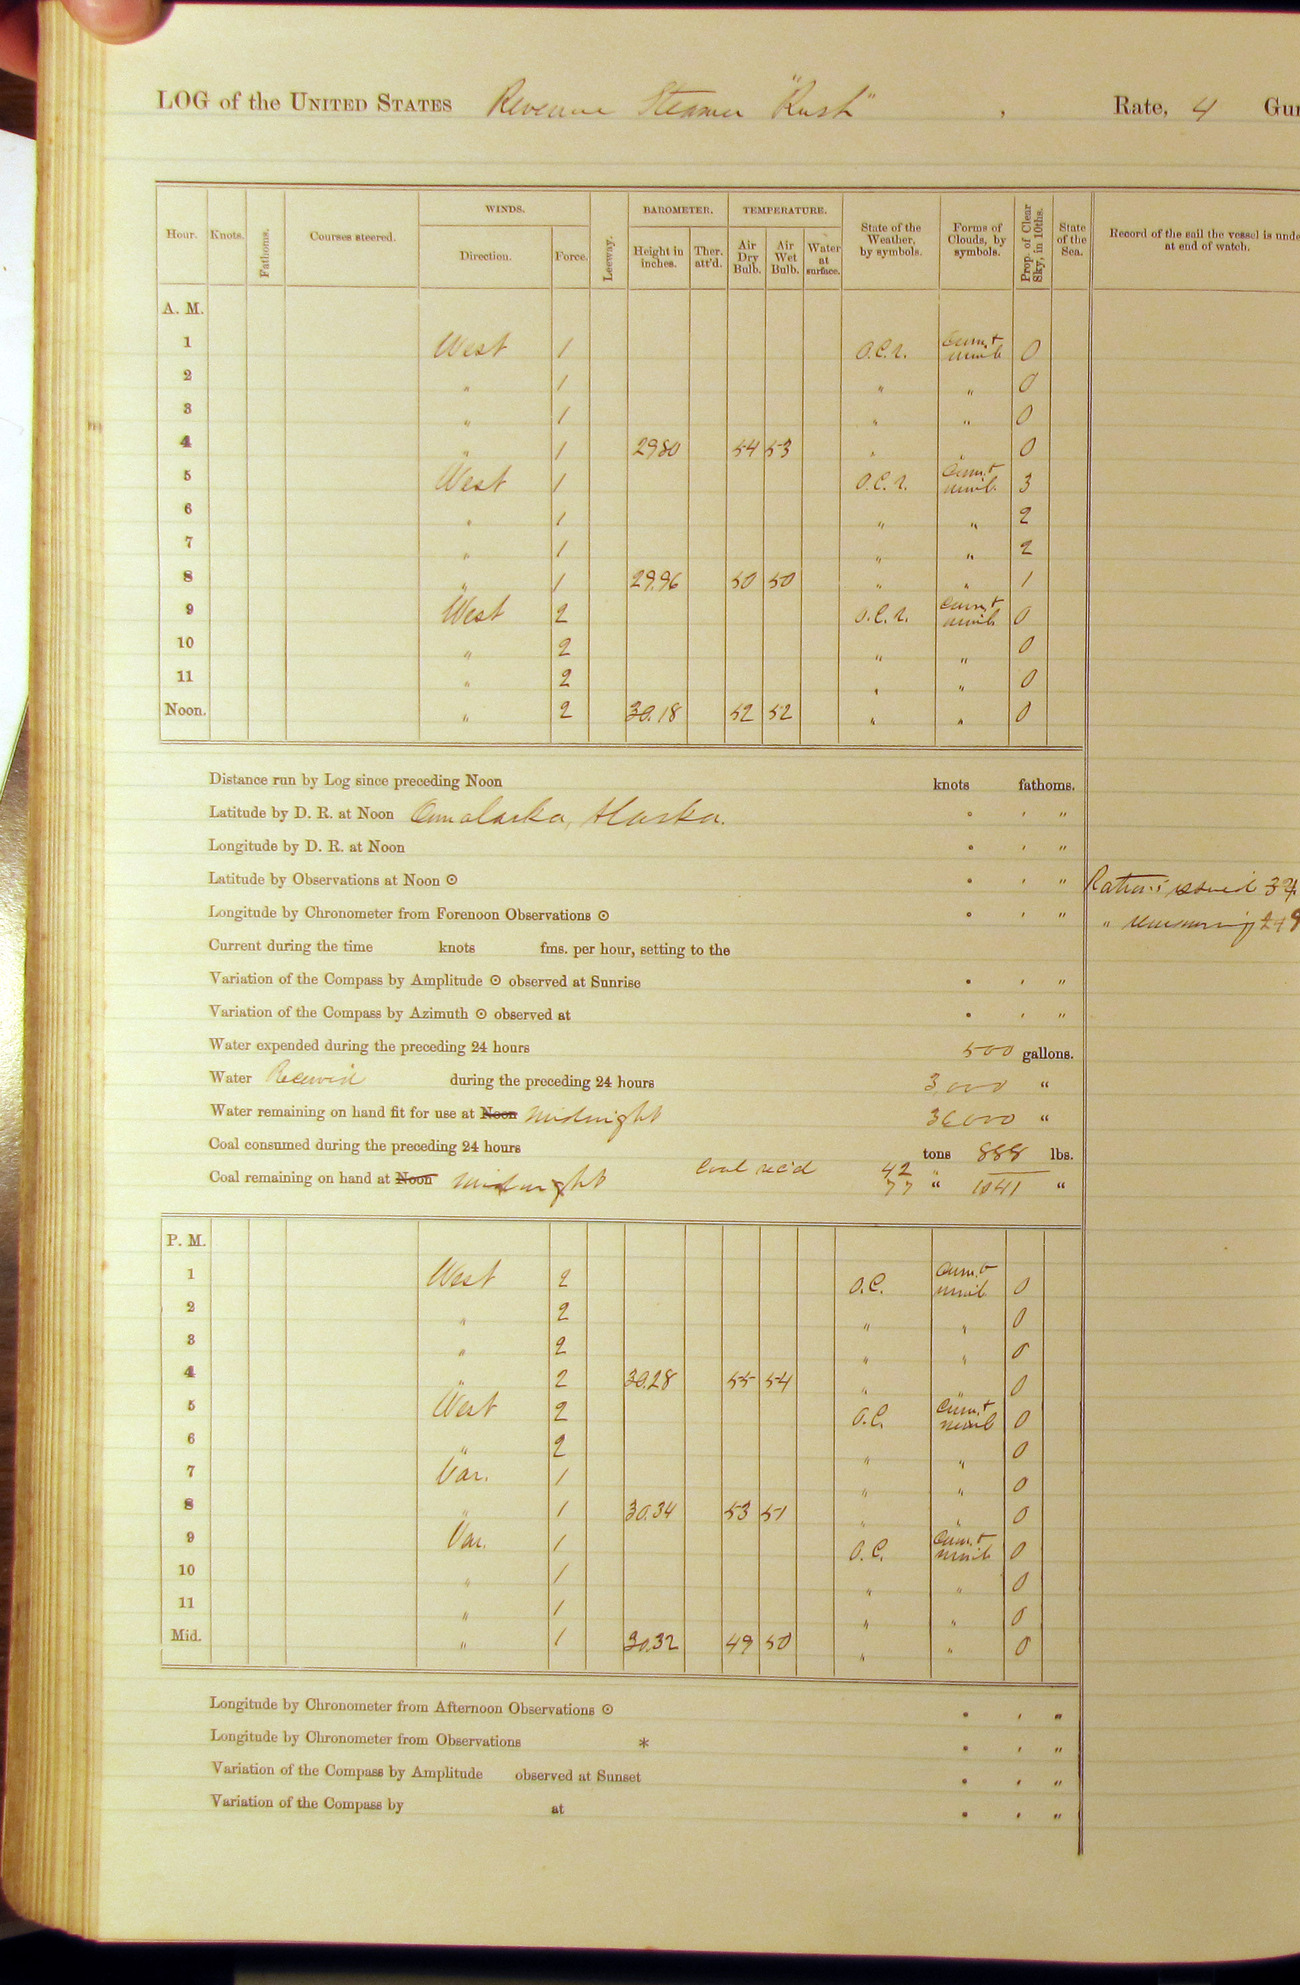 LOG of the UNITED STATES Revenue Steamer "Rush", Rate, 4 Gun
Hour. Knots. Fathoms. Courses steered. WINDS. Direction. Force. Leeway. BAROMETER. Height in inches. Ther. att'd. TEMPERATURE. Air Dry Bulb. Air Wet Bulb. Water at surface. State of the Weather, by symbols. Forms of Clouds, by symbols. Prop. of Clear Sky, in 10ths. State of the Sea. Record of the sail the vessel is unde at end of watch.
A. M.
1 West 1 O.C.r. Cum. + nimb 0
2 " 1 " " 0
3 " 1 " " 0
4 " 1 29.80 54 53 " " 0
5 West 1 O.C.r. Cum. + nimb. 3
6 " 1 " " 2
7 " 1 " " 2
8 " 1 29.96 50 50 " " 1
9 West 2 O.C.r. Cum. + nimb 0
10 " 2 " " 0
11 " 2 " " 0
Noon. " 2 30.18 52 52 " " 0
Distance run by Log since preceding Noon knots fathoms.
Latitude by D. R. at Noon Ounalaska, Alaska. ° ' "
Longitude by D. R. at Noon ° ' "
Latitude by Observations at Noon ☉ ° ' " Rations issued 34
Longitude by Chronometer from Forenoon Observations ☉ ° ' " " remaining
Current during the time knots fms. per hour, setting to the
Variation of the Compass by Amplitude ☉ observed at Sunrise ° ' "
Variation of the Compass by Azimuth ☉ observed at ° ' "
Water expended during the preceding 24 hours 500 gallons.
Water Received during the preceding 24 hours 3,000 "
Water remaining on hand fit for use at Noon Midnight "
Coal consumed during the preceding 24 hours tons 888 lbs.
Coal rec'd 42 "
Coal remaining on hand at Noon Midnight 77 " 1041 "
P. M.
1 West 2 O.C. Cum. + nimb 0
2 " 2 " " 0
3 " 2 " " 0
4 " 2 30.28 55 54 " " 0
5 West 2 O.C. Cum. + nimb 0
6 " 2 " " 0
7 Var. 1 " " 0
8 " 1 30.34 53 51 " " 0
9 Var. 1 O.C. Cum. + nimb 0
10 " 1 " " 0
11 " 1 " " 0
Mid. " 1 30.32 49 50 " " 0
Longitude by Chronometer from Afternoon Observations ☉ ° ' "
Longitude by Chronometer from Observations * ° ' "
Variation of the Compass by Amplitude observed at Sunset ° ' "
Variation of the Compass by at ° ' "